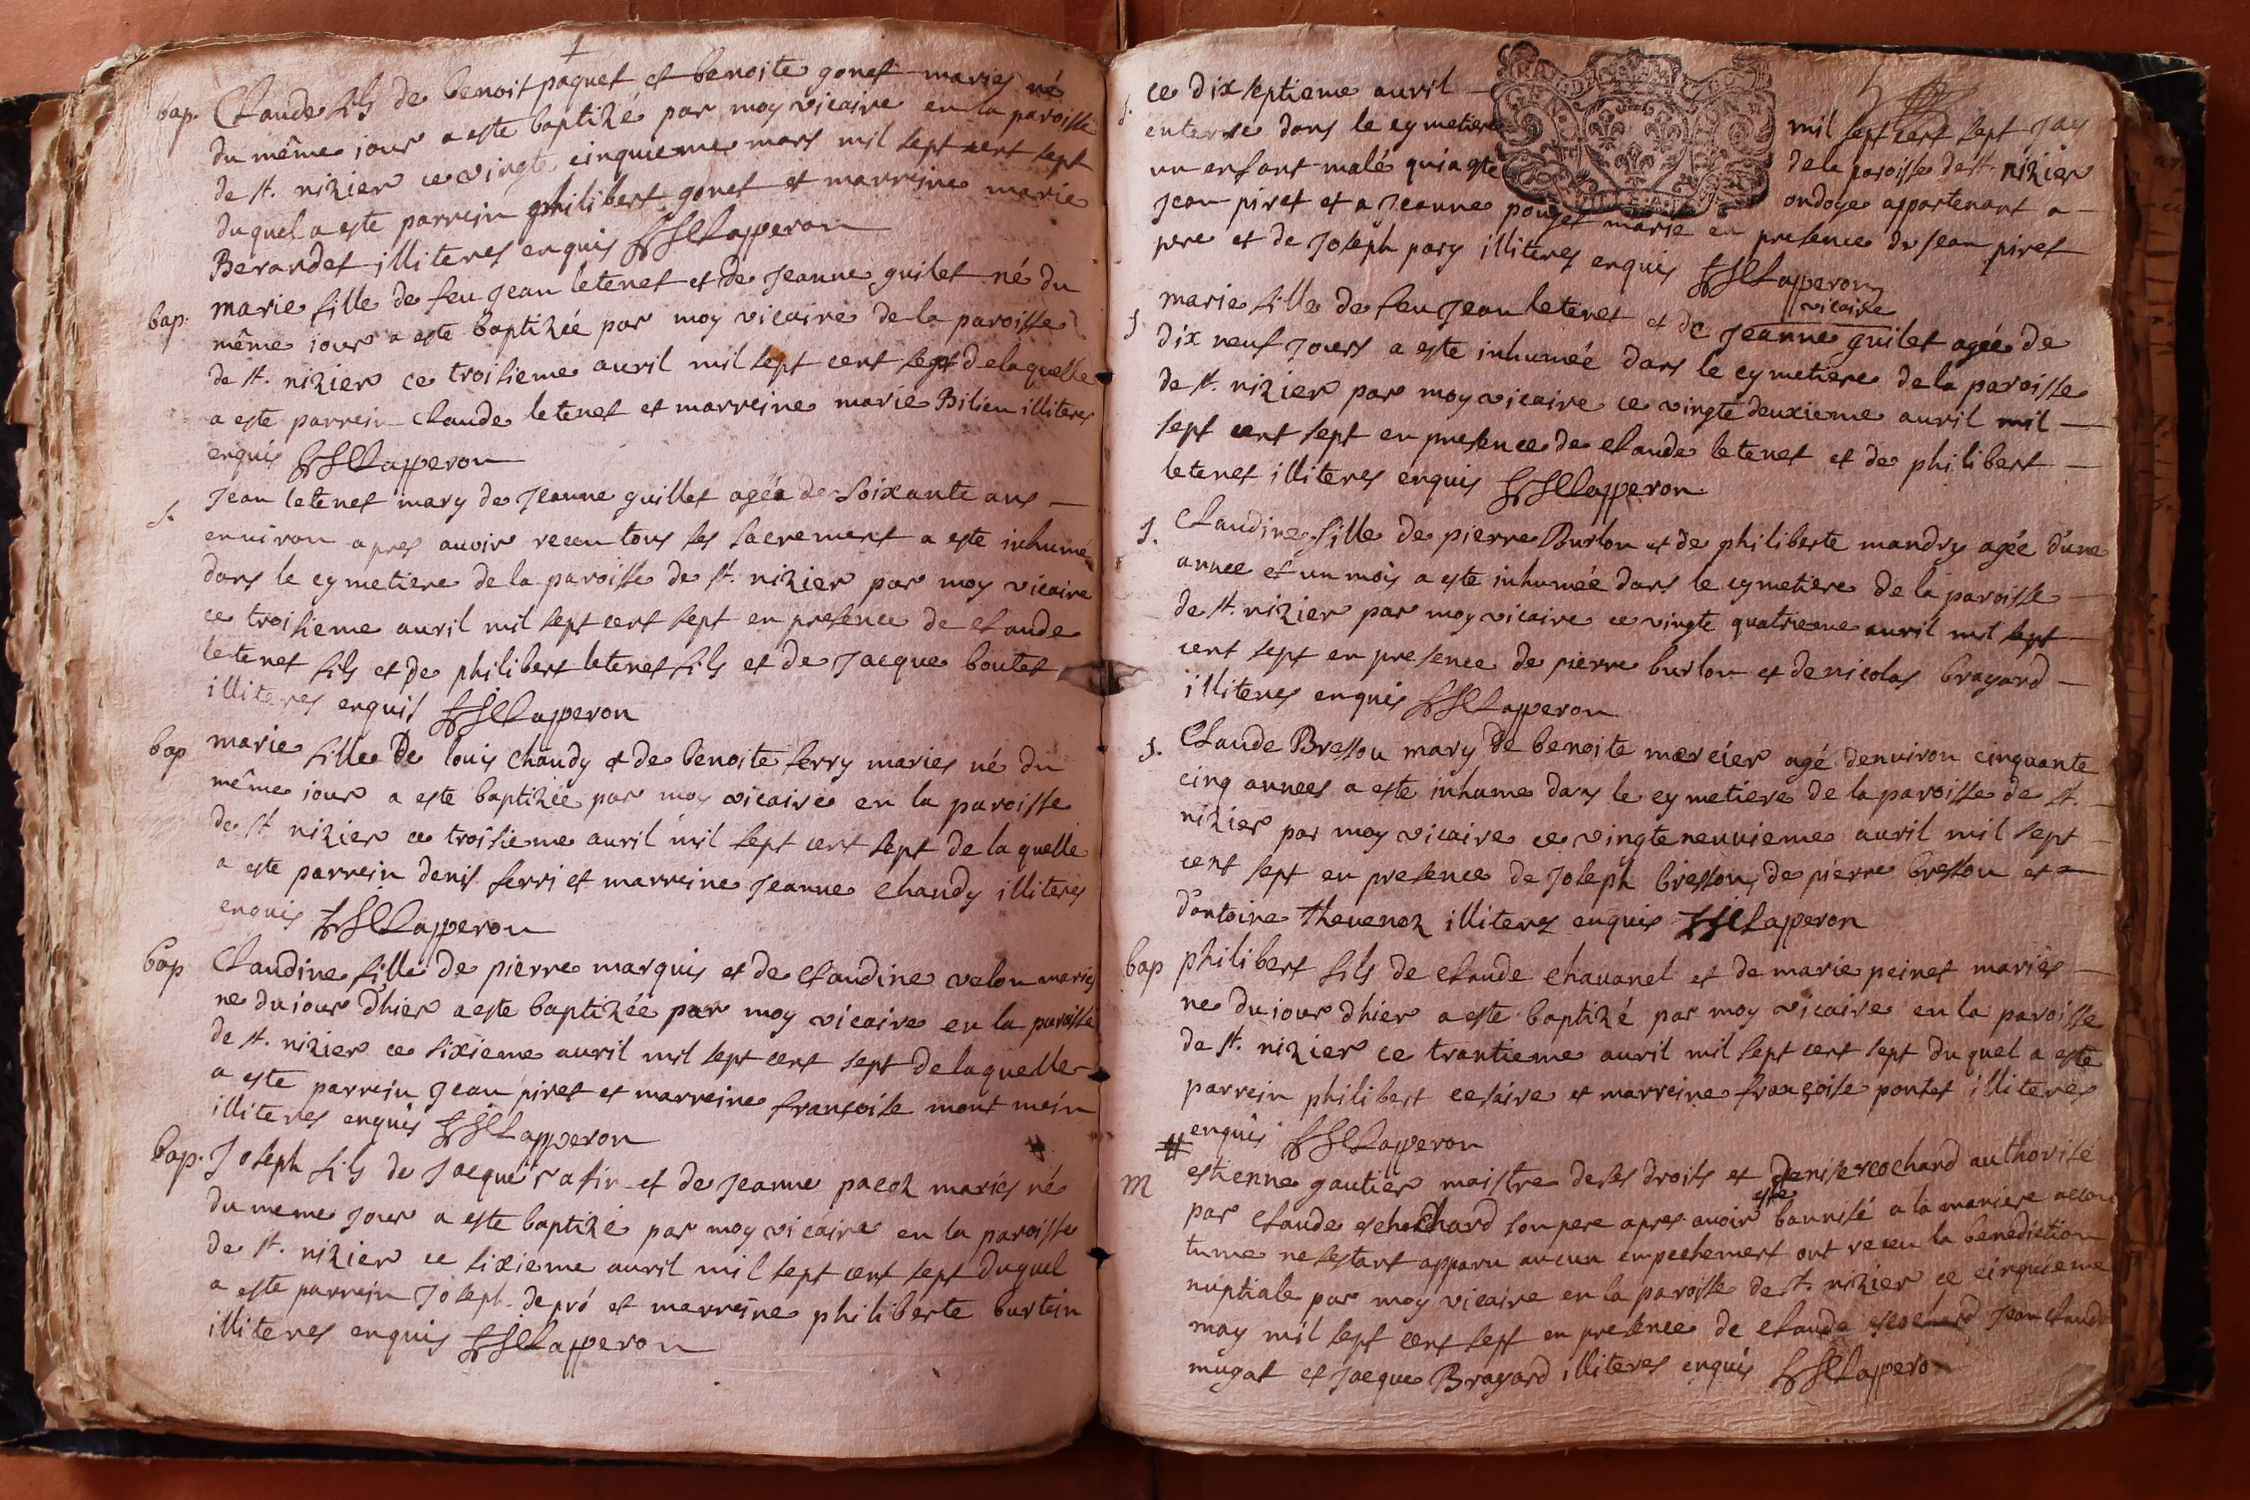 bap. Claude fils de benoit paquet et benoite gonet maries né
du même iour a este baptizé par moy vicaire en la paroisse
de st. nizier ce vingt cinquieme mars mil sept cent sept
duquel a este parrein philibert gonet et marreine marie
Berardet illiteres enquis Lapperon
bap. marie fille de feu jean letenet et de jeanne guilet né du
même iour a este baptizée par moy vicaire de la paroisse
de st. nizier ce troisieme auril mil sept cent sept de laquelle
a este parrein claude letenet et marreine marie Bilien illiteres
enquis Lapperon
s. jean letenet mary de jeanne guillet agéa de soixante ans
enuiron apres auoir receu tous ses sacrement a este inhumé
dans le cymetiere de la paroisse de st. nizier par moy vicaire
ce troisieme auril mil sept cent sept en presence de claude
letenet fils et de philibert letenet fils et de jacque boutet
illiteres enquis Lapperon
bap marie fille de louis chaudy et de benoite ferry maries né du
même iour a este baptizée par moy vicaire en la paroisse
de st nizier ce troisieme auril mil sept cent sept de la quelle
a este parrein denis ferri et marreine jeanne chaudy illiteres
enquis Lapperon
bap Claudine fille de pierre marquis et de claudine velon maries
ne du iour d'hier a este baptizée par moy vicaire en la paroisse
de st. nizier ce sixieme auril mil sept cent sept de laquelle
a este parrein jean piret et marreine françoise mont mein
illiteres enquis Lapperon
bap. Joseph fils de jacque safin et de jeanne pacoz mariés né
du meme jour a este baptizé par moy vicaire en la paroisse
de st. nizier ce sixieme auril mil sept cent sept duquel
a este parrein joseph depró et marreine philiberte burtein
illiteres enquis Lapperon
s. ce dix septieme auril mil sept cent sept jay
enterre dans le cymetiere de la paroisse de st. nizier
un enfant malé qui a este ondoye appartenant a
jean piret et a jeanne pouget marie en presence du jean piret
pere et de joseph pary illiteres enquis Lapperon
vicaire
s marie fille de feu jean letenet et de jeanne guilet agée de
dix neuf jours a este inhumée dans le cymetiere de la paroisse
de st. nizier par moy vicaire ce vingte deuxieme auril mil
sept cent sept en presence de claude letenet et de philibert
letenet illiteres enquis Lapperon
s. Claudine fille de pierre Burlon et de philiberte mandry agée d'une
annee et un mois a este inhumée dans le cymetiere de la paroisse
de st. nizier par moy vicaire ce vingte quatrieme auril mil sept
cent sept en presence de pierre burlon et de nicolas brayard
illiteres enquis Lapperon
s. Claude Bressou mary de benoite mercier agé denuiron cinquante
cinq annees a este inhume dans le cymetiere de la paroisse de st.
nizier par moy vicaire ce vingte neuuieme auril mil sept
cent sept en presence de joseph bressou, de pierre bressou et
d'antoine thevenoz illiterz enquis Lapperon
bap philibert fils de claude chauanel et de marie peinet mariés
ne du iour d'hier a este baptizé par moy vicaire en la paroisse
de st. nizier ce trantieme auril mil sept cent sept du quel a este
parrein philibert cesaire et marreine françoise pontet illiteres
enquis Lapperon
m estienne gautier maistre de ses droits et denise cochard authorisé
par claude chard son pere apres auoir este bannisé a la maniere accou
tume ne sestant apparu aucun empechement ont receu la benediction
nuptiale par moy vicaire en la paroisse de st. nizier ce cinquieme
may mil sept cent sept en presence de claude jean claude
mugat et jacque Brayard illiteres enquis Lapperon